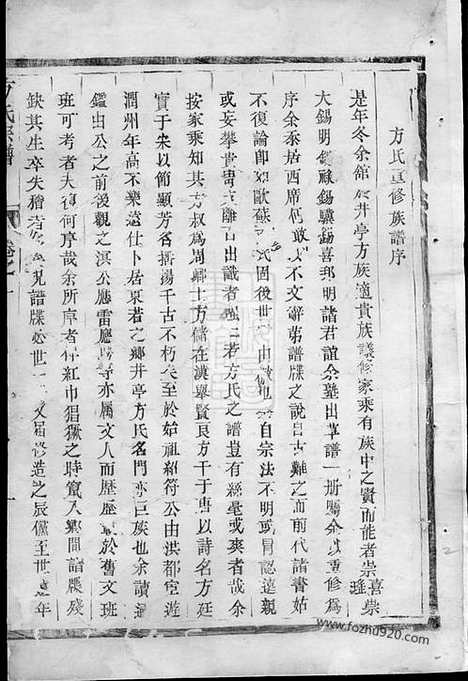 方氏重修族譜序
是年冬余館 井亭方族適貴族議修家乘有族中之賢而能者崇喜崇瑤
大錫明錫祿錫驥錫喜邦明諸君誼余舉出草譜一冊囑余 重修爲
序余忝居西席何敢 不文辭第譜牒之說自古難之而前代諸書姑
不復論即如歐蘇 氏固後世 由 自宗法不明或冒認遠親
或妄攀世貴 離 召譏者 若方氏之譜豈有絲毫或爽者哉余
按家乘知其 方叔爲周卿士方儲在漢舉賢良方干于唐以詩名方廷
實于朱以節顯芳名 揚千古不朽矣至於始祖紹符公由洪都宦遊
潤州年高不樂遠仕卜居東若之鄉井亭方氏名門 巨族也余讀
鑑由公之前後觀之溟公應雷應 等亦屬文人而歷歷 於舊文班
班可考者夫復何序哉余所序者 紅巾猖獗之時竄入鄉間譜牒殘
缺其生卒失稽者 見譜牒必世 文屆修造之辰僅至世 年
方氏宗譜
卷之
www.fozhu920.com